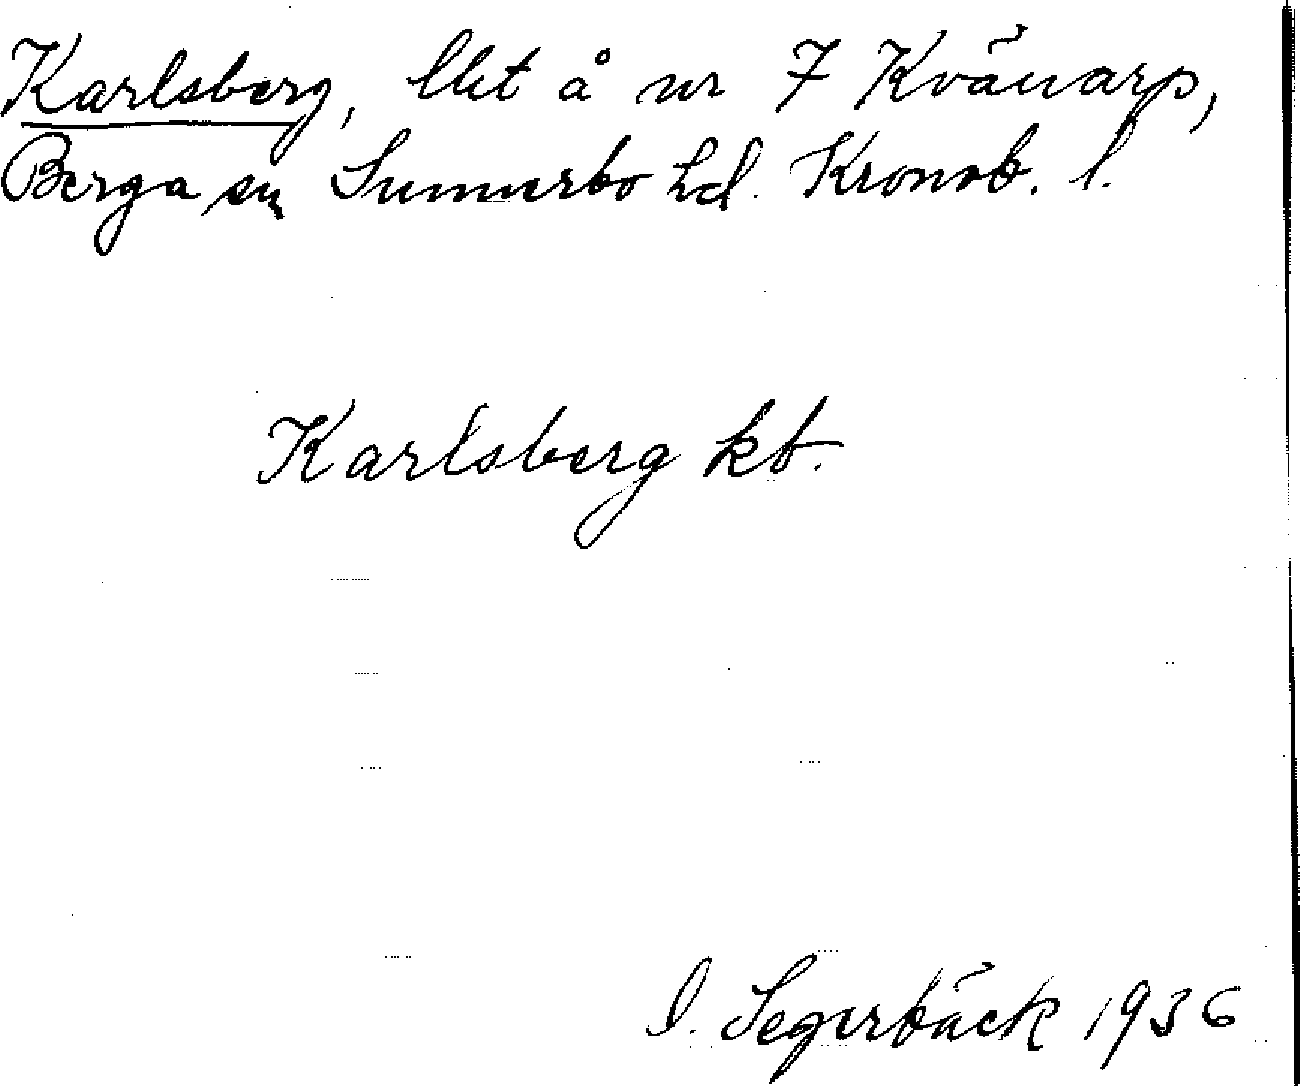 Karlsberg, lht å nr 7 Kvänarp,
Berga sn Sunnerbo hd. Kronob. l.
Karlsberg kb.
I. Segerbäck 1936